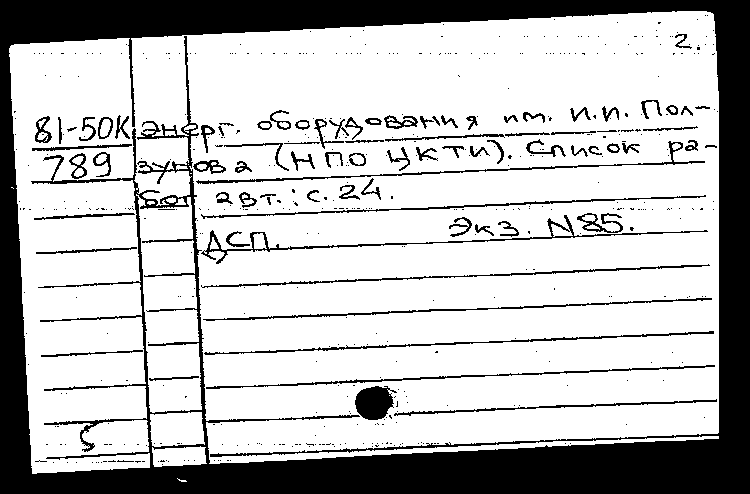 2.
81-50К энерг. оборудования им. И.И. Пол-
789 зунова (НПО ЦКТИ). Список ра-
бот авт.: с. 24.
ДСП. Экз. N85.
5